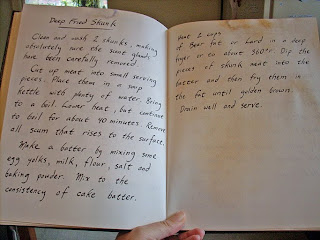 Deep Fried Skunk
Clean and wash 2 skunks, making
absolutely sure the scent glands
have been carefully removed
Cut up meat into small serving
pieces. Place them in a soup
kettle with plenty of water. Bring
to a boil. Lower heat, but continue
to boil for about 40 minutes. Remove
all scum that rises to the surface.
Make a batter by mixing some
egg yolks, milk, flour, salt and
baking powder. Mix to the
consistency of cake batter.
Heat 2 cups
of Bear fat or Lard in a deep
fryer or to about 360°F. Dip the
pieces of skunk meat into the
batter and then fry them in
the fat until golden brown.
Drain well and serve.